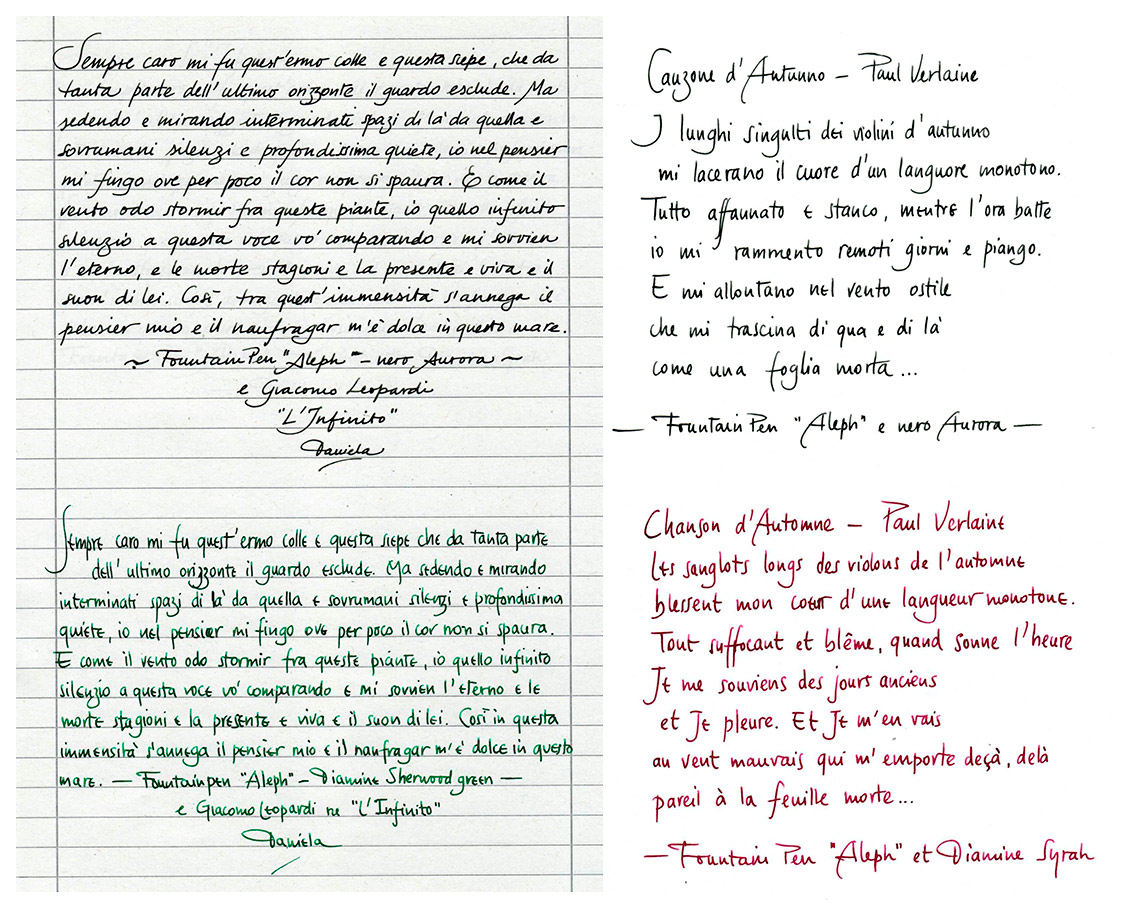 Sempre caro mi fu quest'ermo colle e questa siepe, che da
tanta parte dell'ultimo orizzonte il guardo esclude. Ma
sedendo e mirando interminati spazi di là da quella e
sovrumani silenzi e profondissima quiete, io nel pensier
mi fingo ove per poco il cor non si spaura. E come il
vento odo stormir fra queste piante, io quello infinito
silenzio a questa voce vo' comparando e mi sovvien
l'eterno, e le morte stagioni e la presente e viva e il
suon di lei. Così, tra quest'immensità s'annega il
pensier mio e il naufragar m'è dolce in questo mare.
~ Fountain Pen "Aleph" - nero Aurora ~
e Giacomo Leopardi
"L'Infinito"
Daniela
Sempre caro mi fu quest'ermo colle e questa siepe che da tanta parte
dell'ultimo orizzonte il guardo esclude. Ma sedendo e mirando
interminati spazi di là da quella e sovrumani silenzi e profondissima
quiete, io nel pensier mi fingo ove per poco il cor non si spaura.
E come il vento odo stormir fra queste piante, io quello infinito
silenzio a questa voce vo' comparando e mi sovvien l'eterno e le
morte stagioni e la presente e viva e il suon di lei. Così in questa
immensità s'annega il pensier mio e il naufragar m'è dolce in questo
mare. — Fountain pen "Aleph" - Diamine Sherwood green —
e Giacomo Leopardi ne "L'Infinito"
Daniela
Canzone d'Autunno — Paul Verlaine
I lunghi singulti dei violini d'autunno
mi lacerano il cuore d'un languore monotono.
Tutto affannato e stanco, mentre l'ora batte
io mi rammento remoti giorni e piango.
E mi allontano nel vento ostile
che mi trascina di qua e di là
come una foglia morta...
— Fountain Pen "Aleph" e nero Aurora —
Chanson d'Automne — Paul Verlaine
Les sanglots longs des violons de l'automne
blessent mon cœur d'une langueur monotone.
Tout suffocant et blême, quand sonne l'heure
Je me souviens des jours anciens
et Je pleure. Et Je m'en vais
au vent mauvais qui m'emporte deçà, delà
pareil à la feuille morte...
— Fountain Pen "Aleph" et Diamine Syrah